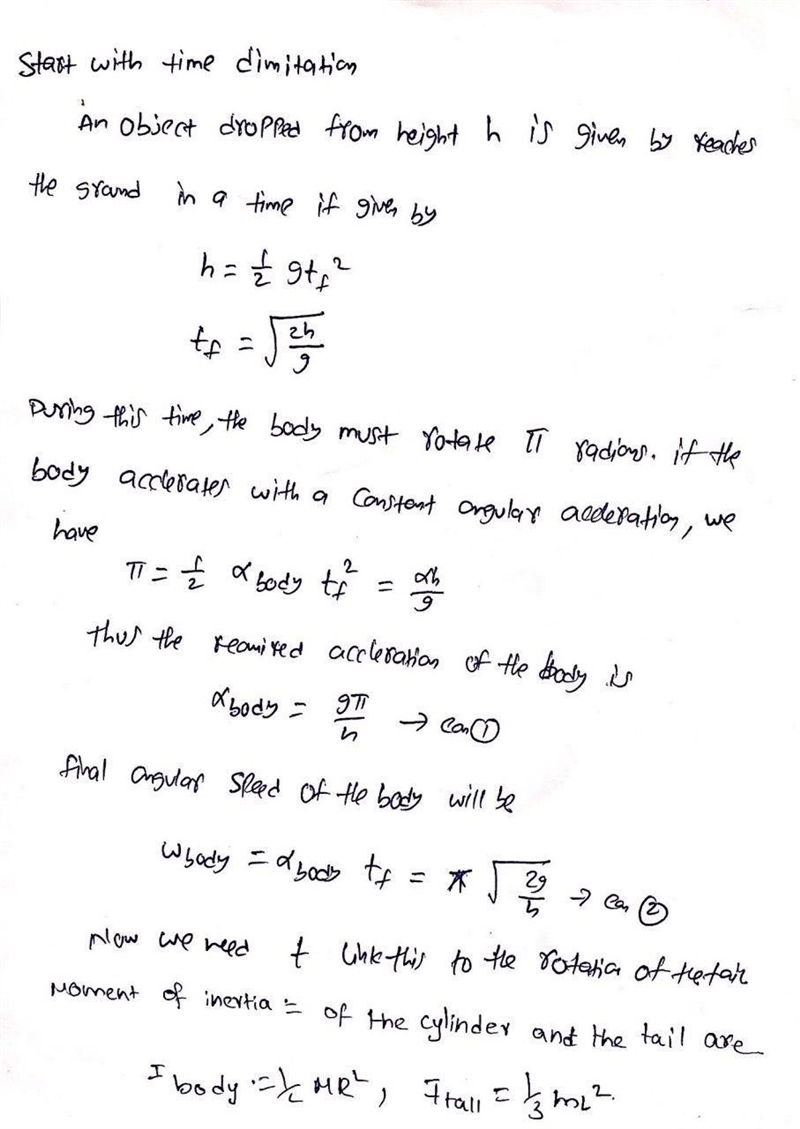 Start with time dimitation
An object dropped from height h is given by reaches
the grand in a time if given by
h = 1/2 gt_f²
t_f = √(2h/g)
During this time, the body must rotate π radions. if the
body acclerates with a constent angular acceleration, we
have
π = 1/2 α_body t_f² = αh/g
thus the required accleration of the body is
α_body = gπ/h → eqn ①
final angular speed of the body will be
ω_body = α_body t_f = π √(2g/h) → eqn ②
Now we need t link this to the rotation of the tair
Moment of inertia = of the cylinder and the tail are
I_body = 1/2 MR², I_tall = 1/3 mL².